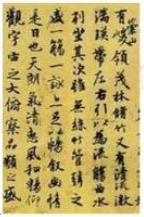 崇山
有峻領茂林脩竹又有清流激
湍暎帶左右引以為流觴曲水
列坐其次雖無絲竹管弦之
盛一觴一詠亦足以暢叙幽情
是日也天朗氣清惠風和暢仰
觀宇宙之大俯察品類之盛